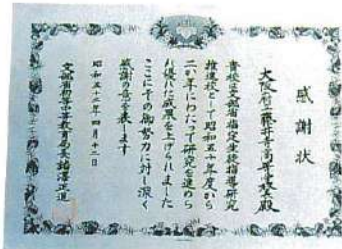 感謝状
大阪府立藤井寺高等学校殿
貴校は文部省指定生徒指導研究
推進校として昭和五十年度から
二か年にわたって研究を進めら
れ優れた成果をあげられました
ここにその御努力に対し深く
感謝の意を表します
昭和五十二年四月十二日
文部省初等中等教育局長諸澤正道